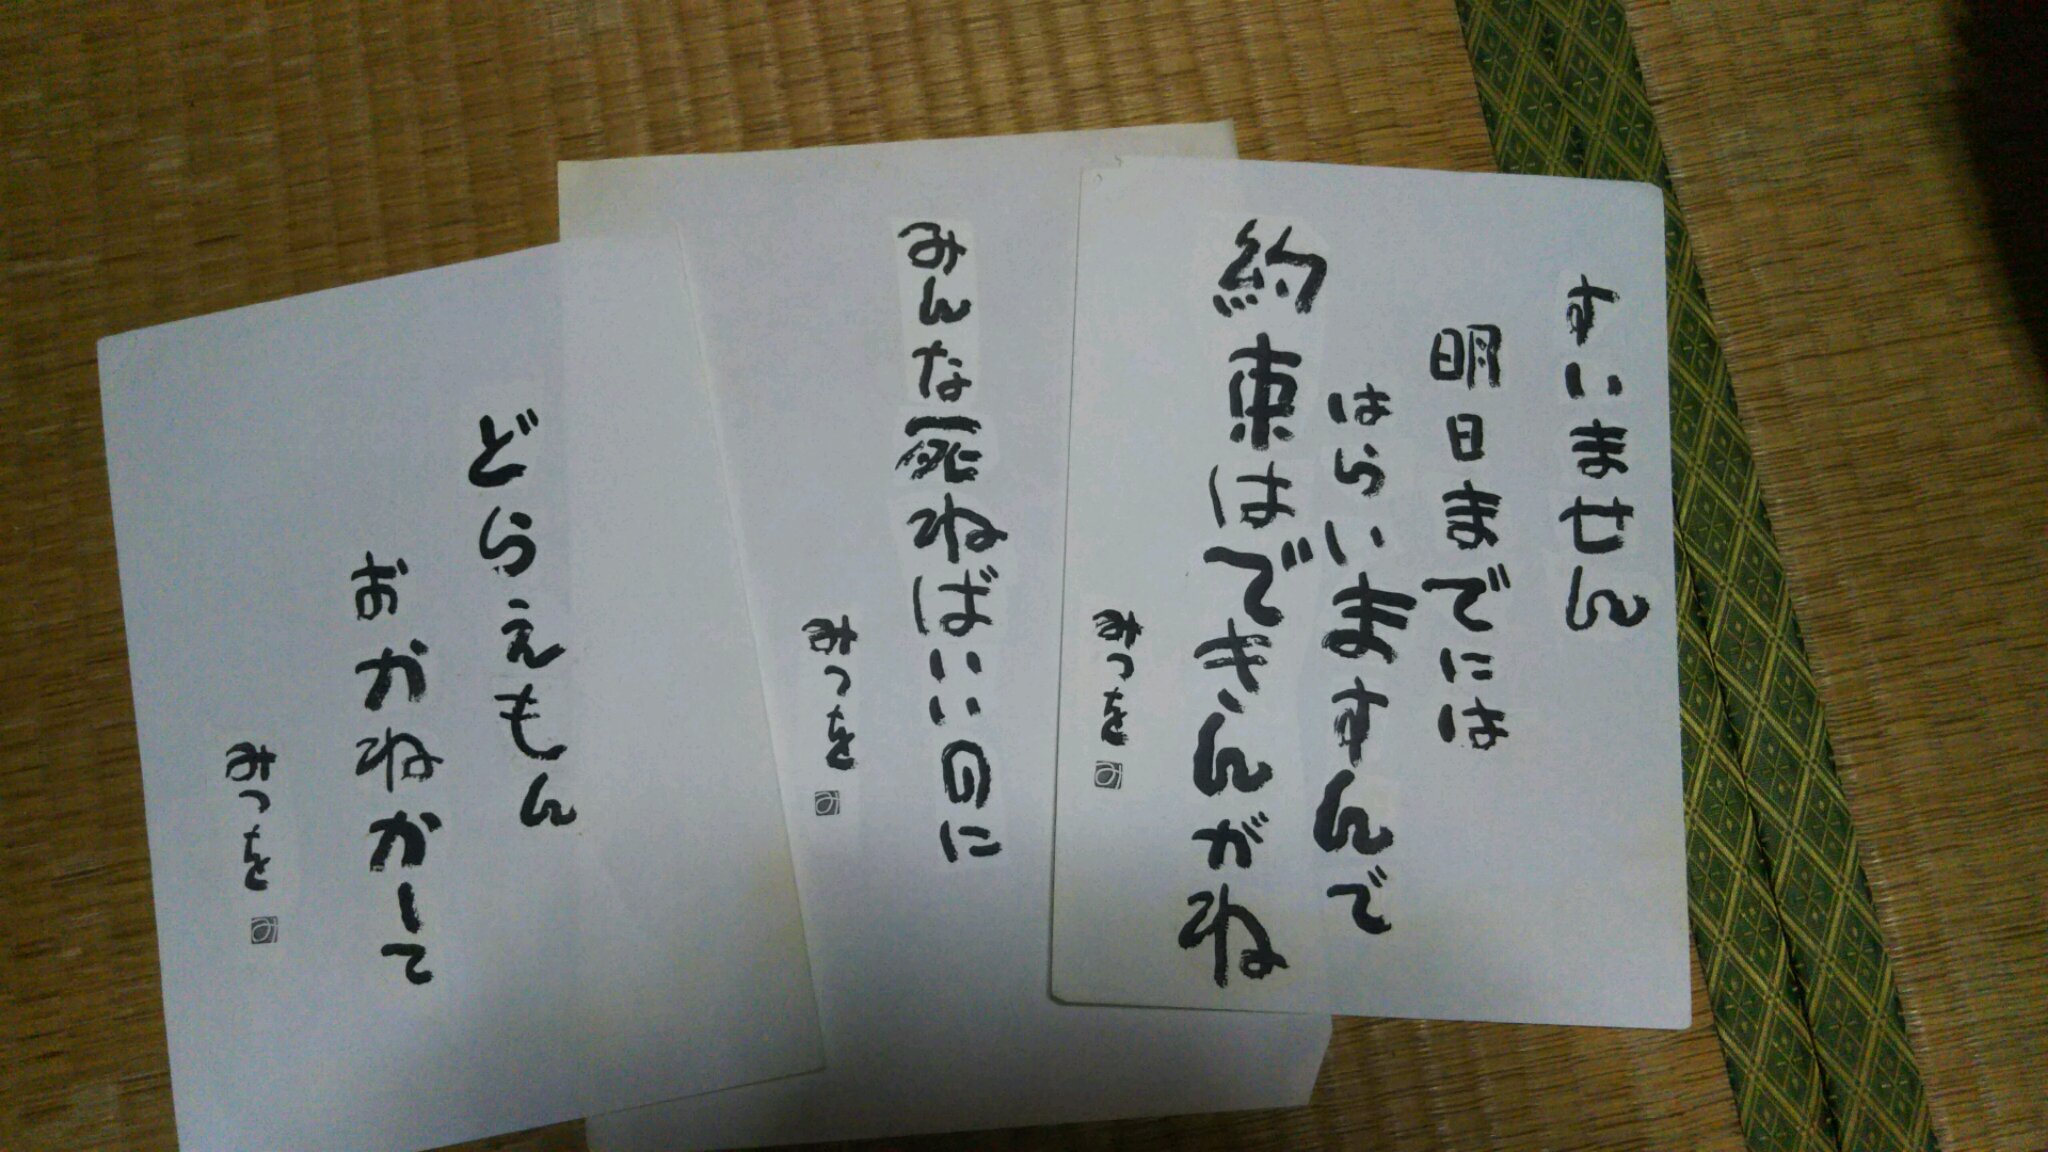 すいません
明日までには
はらいますんで
約束はできんがね
みつを
みんな死ねばいいのに
みつを
どらえもん
おかねかして
みつを